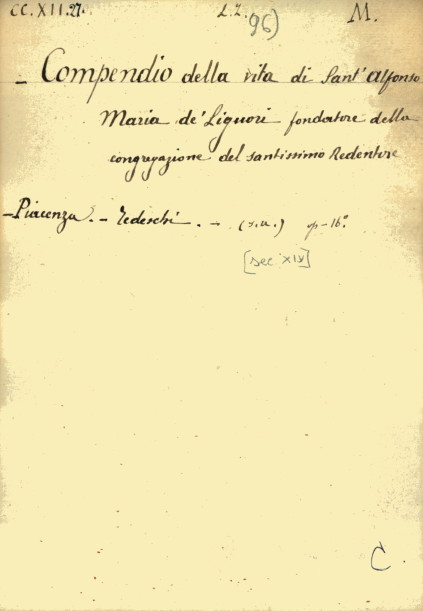 CC.XII.27. L.Z. 96) M.
- Compendio della vita di Sant' Alfonso
Maria de' Liguori fondatore della
congregazione del santissimo Redentore
- Piacenza. - Tedeschi. - (s.a.) p-16°
[sec XIX]
C